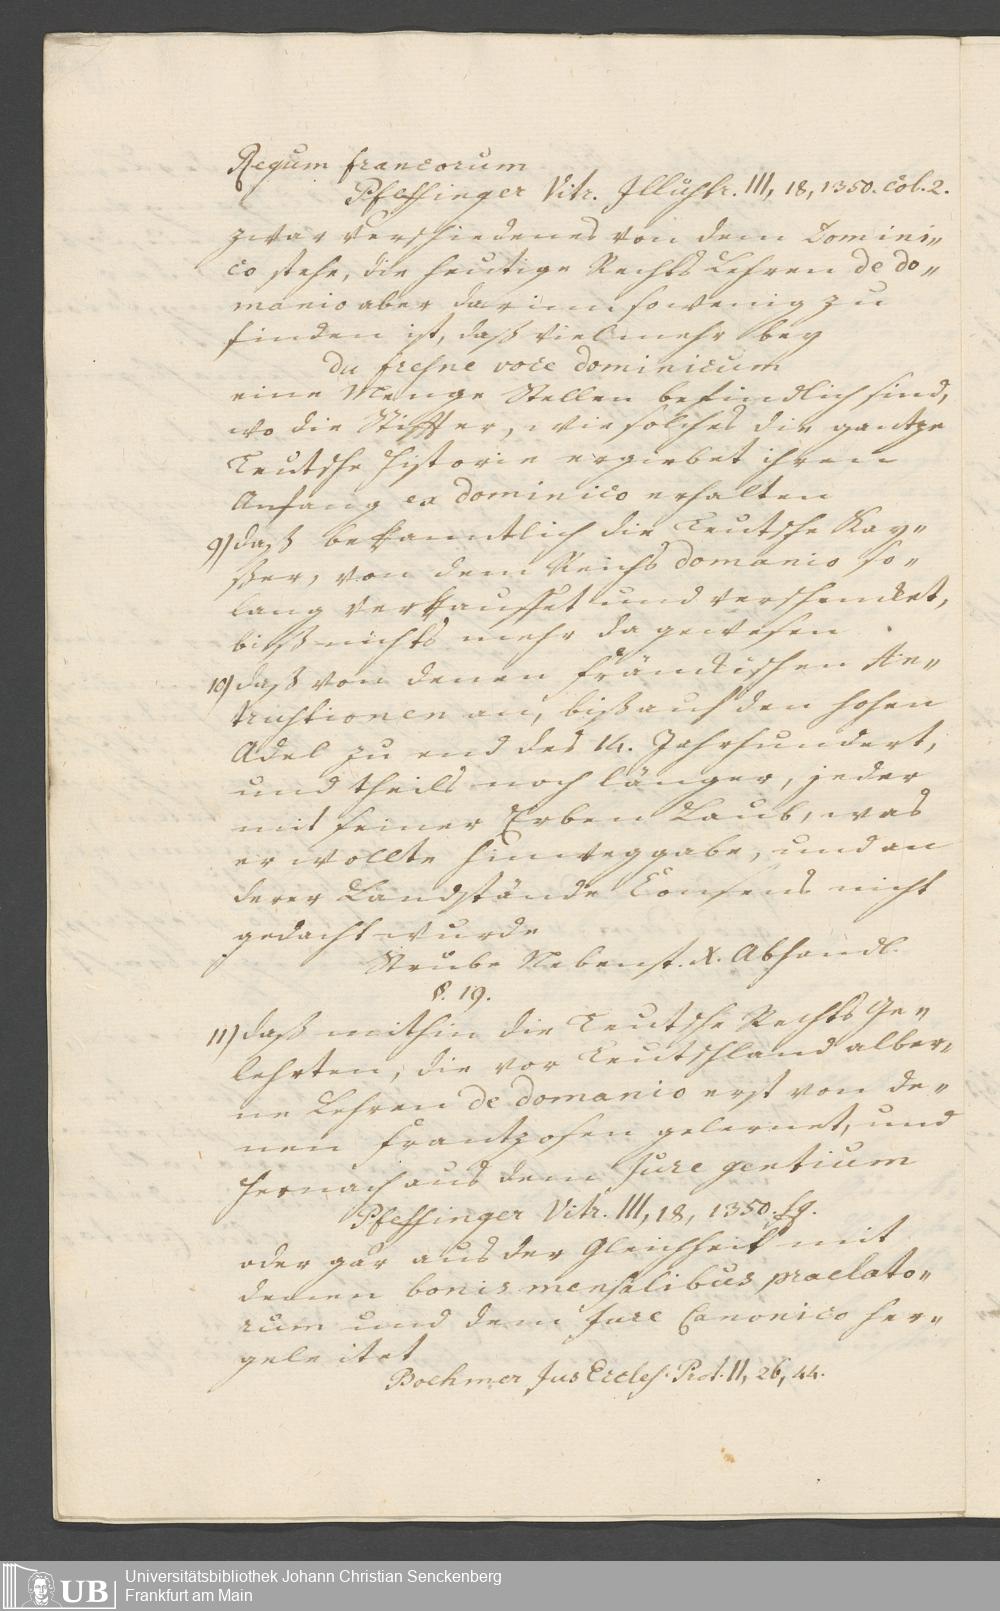 Regum francorum
Pfeffinger Vitr. Illustr. III, 18, 1350. col. 2.
zwar verschiedenes von dem Domini„
co stehe, die heutige Rechts Lehren de do„
manio aber darinn sowenig zu
finden ist, daß vielmehr bey
du fresne voce dominicum
eine Menge Stellen befindlich sind,
wo die Stiffter, wie solches die gantze
Teutsche Historie ergiebet ihren
Anfang ex dominico erhalten
9) daß bekanntlich die Teutsche Kay„
ßer, von dem Reichs domanio so„
lang verkauffet und verschencket,
biß nichts mehr da gewesen
10) daß von denen Fränckischen An„
trustionen an, biß auf den hohen
Adel zu end des 14. Jahrhundert,
und theils noch länger, jeder
mit seiner Erben Laub, was
er wollte hinweggabe, und an
derer Landstände Consens nicht
gedacht wurde
Strube Nebenst. X. Abhandl.
§. 19.
11) daß mithin die Teutsche Rechts Ge„
lehrten, die vor Teutschland alber„
ne Lehren de domanio erst von de„
nen Frantzosen gelernet, und
hernach aus dem Jure gentium
Pfeffinger Vitr. III, 18, 1350. sq.
oder gar aus der Gleichheit mit
denen bonis mensalibus praelato„
rum und dem Jure Canonico her„
geleitet
Boehmer Jus Eccles. Prot. II, 26, 44.
UB
Universitätsbibliothek Johann Christian Senckenberg
Frankfurt am Main